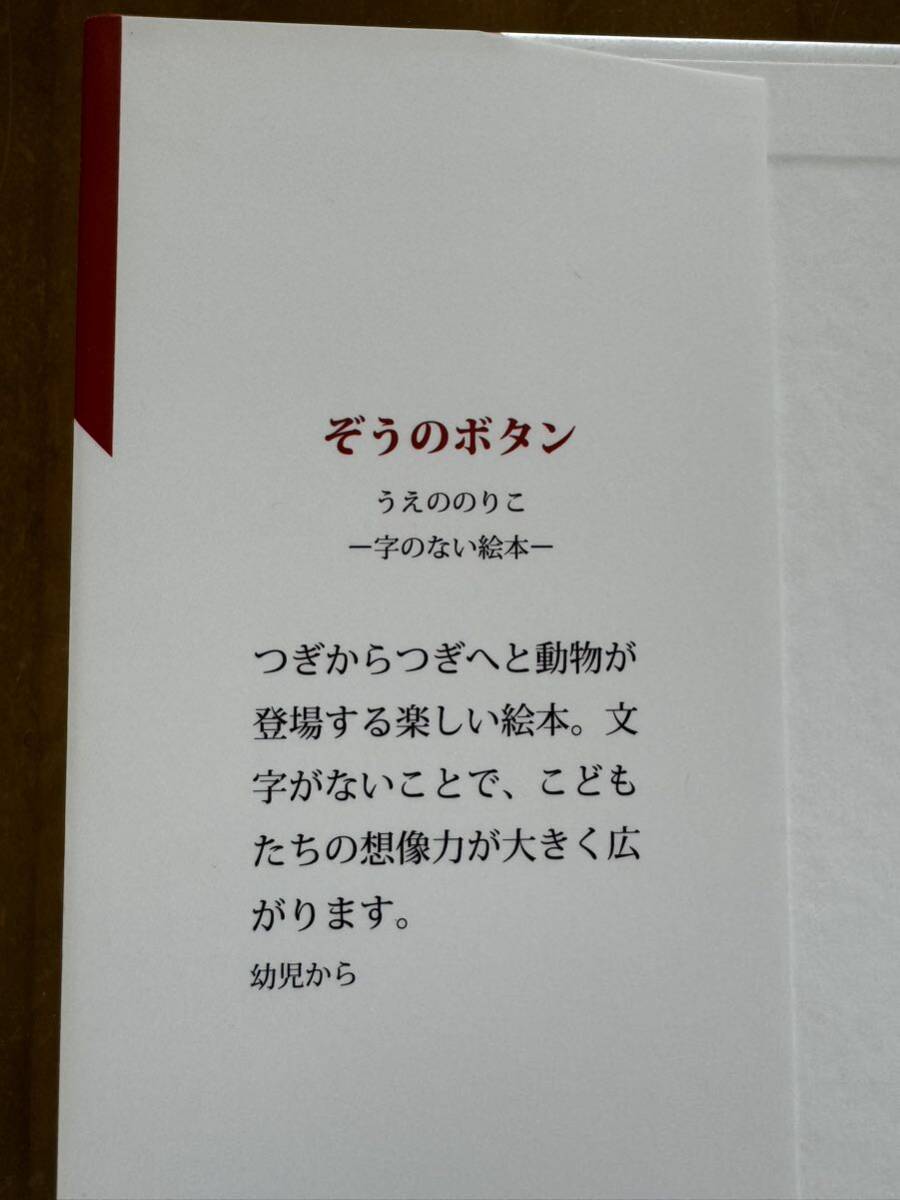 ぞうのボタン
うえののりこ
―字のない絵本―
つぎからつぎへと動物が
登場する楽しい絵本。文
字がないことで、こども
たちの想像力が大きく広
がります。
幼児から